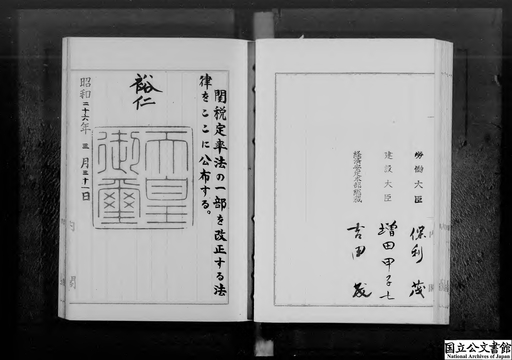 勞働大臣 保利茂
建設大臣 増田甲子七
経済安定本部総裁 吉田茂
関税定率法の一部を改正する法
律をここに公布する。
裕仁
天皇
御璽
昭和二十六年三月三十一日
国立公文書館
National Archives of Japan